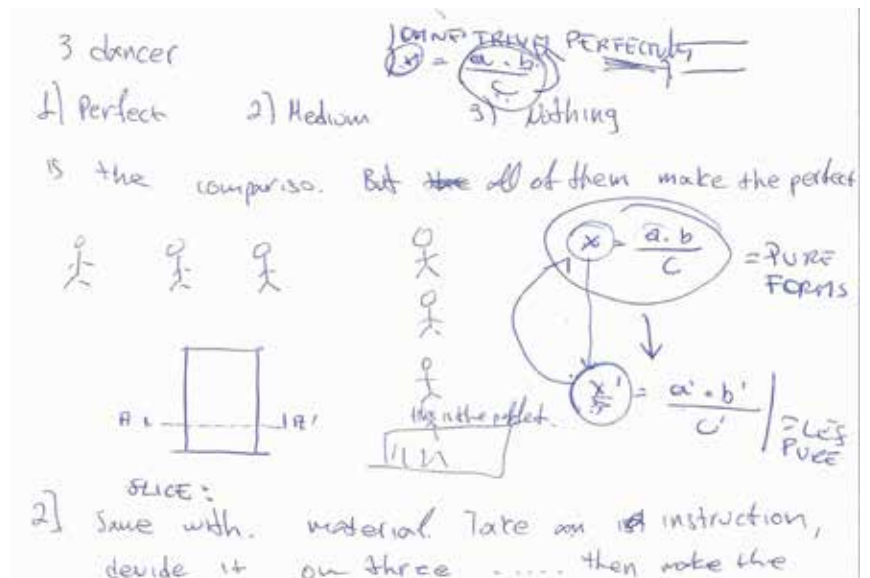 3 dancer
PERFECTLY
x = a . b / c
1) Perfect 2) Medium 3) Nothing
is the compariso. But all of them make the perfect
x = a . b / c = PURE FORMS
x' = a' . b' / c' = LES PURE
A A'
this is the perfect.
SLICE:
2] Same with. material. Take an instruction,
devide it on three ..... then make the